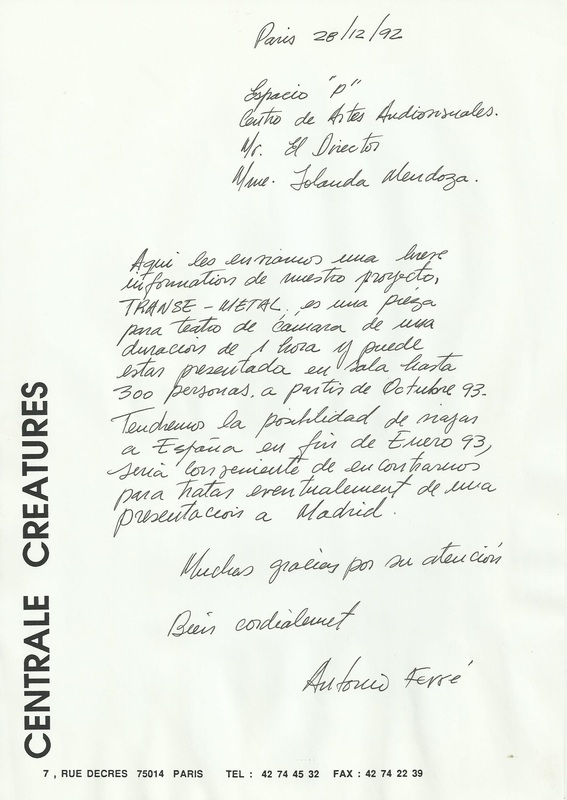 Paris 28/12/92
Espacio "P"
Centro de Artes Audiovisuales.
Mr. El Director
Mme. Iolanda Mendoza.
Aqui les enviamos una breve
information de nuestro proyecto,
TRANSE-METAL, es una pieza
para teatro de cámara de una
duración de 1 hora y puede
estar presentada en sala hasta
300 personas. a partir de Octubre 93.
Tendremos la posiblidad de viajar
a España en fin de Enero 93,
seria conveniente de encontrarnos
para tratar eventualement de una
presentación a Madrid.
Muchas gracias por su atención
Bien cordialemet
Antonio Ferré
CENTRALE CREATURES
7 , RUE DECRES 75014 PARIS TEL : 42 74 45 32 FAX : 42 74 22 39